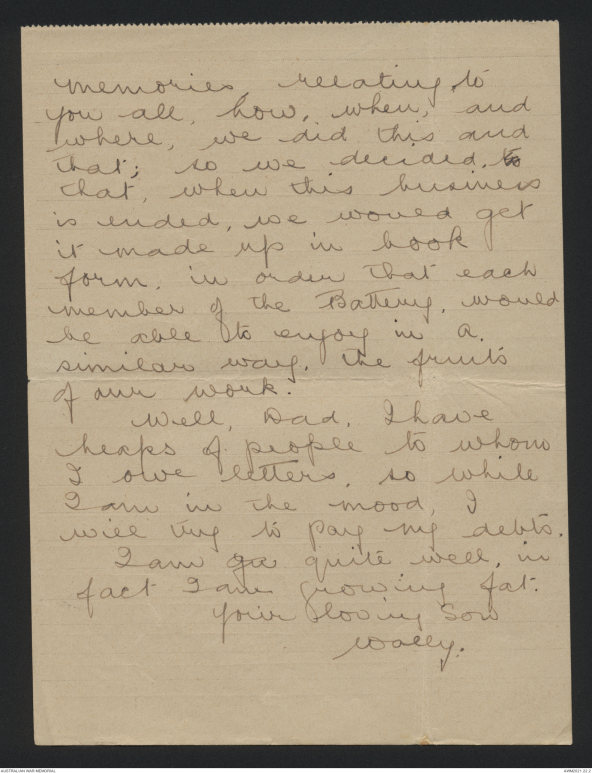 memories, relating, to
you all, how, when, and
where, we did this and
that; so we decided, to
that, when this business
is ended, we would get
it made up in book
form, in order that each
member of the Battery, would
be able to enjoy in a.
similar way, the fruits
of our work.
Well, Dad, I have
heaps of people to whom
I owe letters, so while
I am in the mood, I
will try to pay my debts.
I am qu quite well, in
fact I am growing fat.
Your loving Son
Wally.
AUSTRALIAN WAR MEMORIAL